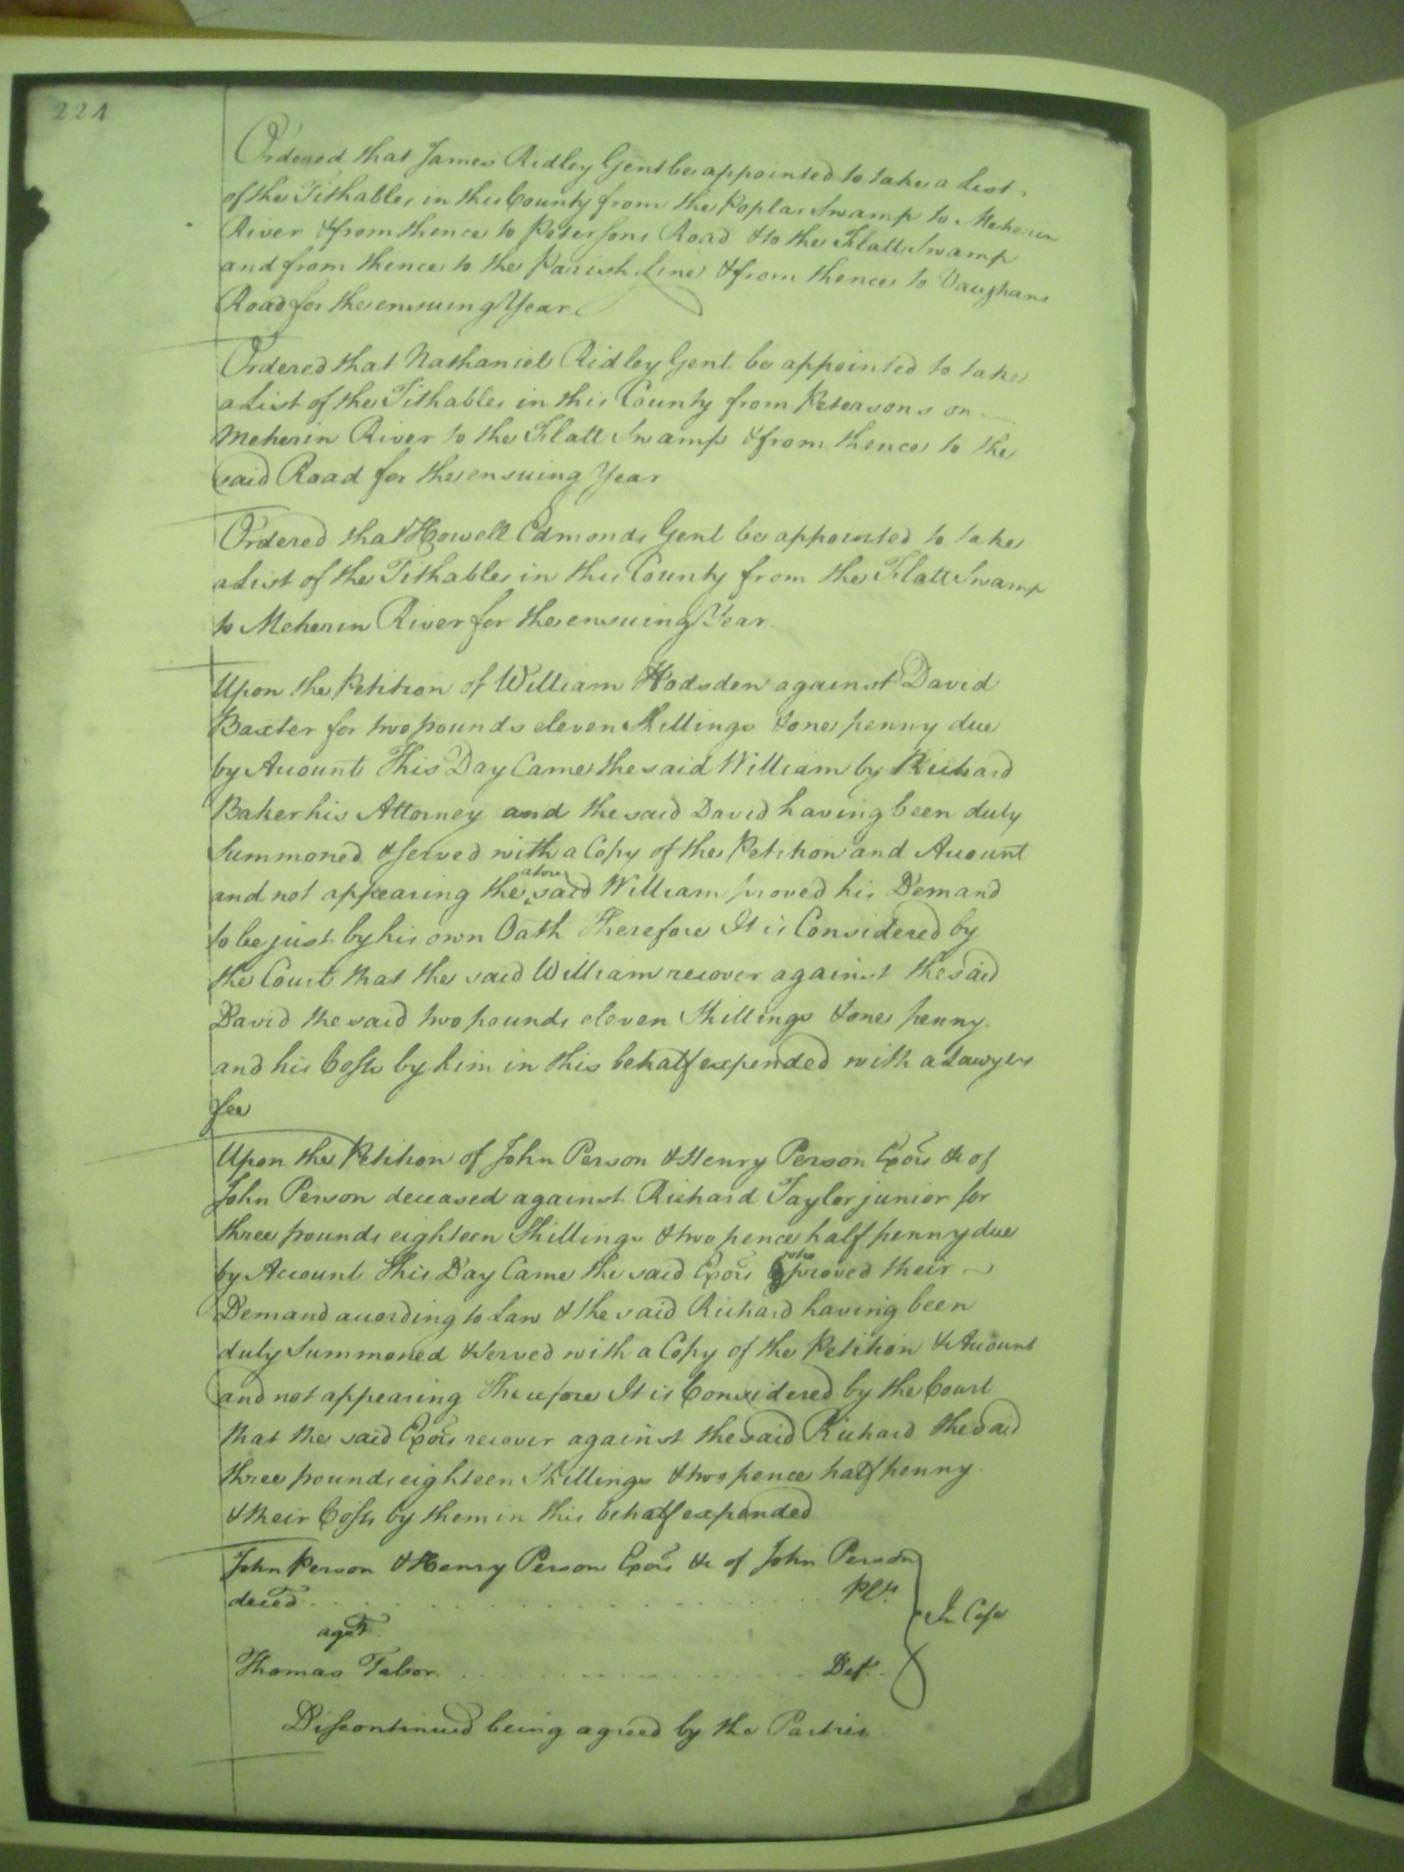 224
Ordered that James Ridley Gent be appointed to take a List
of the Tithables in this County from the Poplar Swamp to Meherin
River & from thence to Petersons Road & to the Flatt Swamp
and from thence to the Parish Line & from thence to Vaughans
Road for the ensuing Year
Ordered that Nathaniel Ridley Gent be appointed to take
a List of the Tithables in this County from Petersons on
Meherin River to the Flatt Swamp & from thence to the
said Road for the ensuing Year
Ordered that Howell Edmonds Gent be appointed to take
a List of the Tithables in this County from the Flatt Swamp
to Meherin River for the ensuing Year
Upon the Petition of William Hodsden against David
Baxter for two pounds eleven Shillings & one penny due
by Account This Day Came the said William by Richard
Baker his Attorney and the said David having been duly
Summoned & served with a Copy of the Petition and Account
and not appearing the above said William proved his Demand
to be just by his own Oath Therefore It is Considered by
the Court that the said William recover against the said
David the said two pounds eleven Shillings & one penny
and his Costs by him in this behalf expended with a Lawyers
fee
Upon the Petition of John Person & Henry Person Exors &c of
John Person deceased against Richard Taylor junior for
three pounds eighteen Shillings & two pence half penny due
by Account This Day Came the said Exors who proved their
Demand according to Law & the said Richard having been
duly Summoned & served with a Copy of the Petition & Account
and not appearing Therefore It is Considered by the Court
that the said Exors recover against the said Richard the said
three pounds eighteen Shillings & two pence half penny
& their Costs by them in this behalf expended
John Person & Henry Person Exors &c of John Person
deced . . . . . . . . . . Plts
In Case
agst
Thomas Tabor . . . . . . . . . . Deft
Discontinued being agreed by the Parties